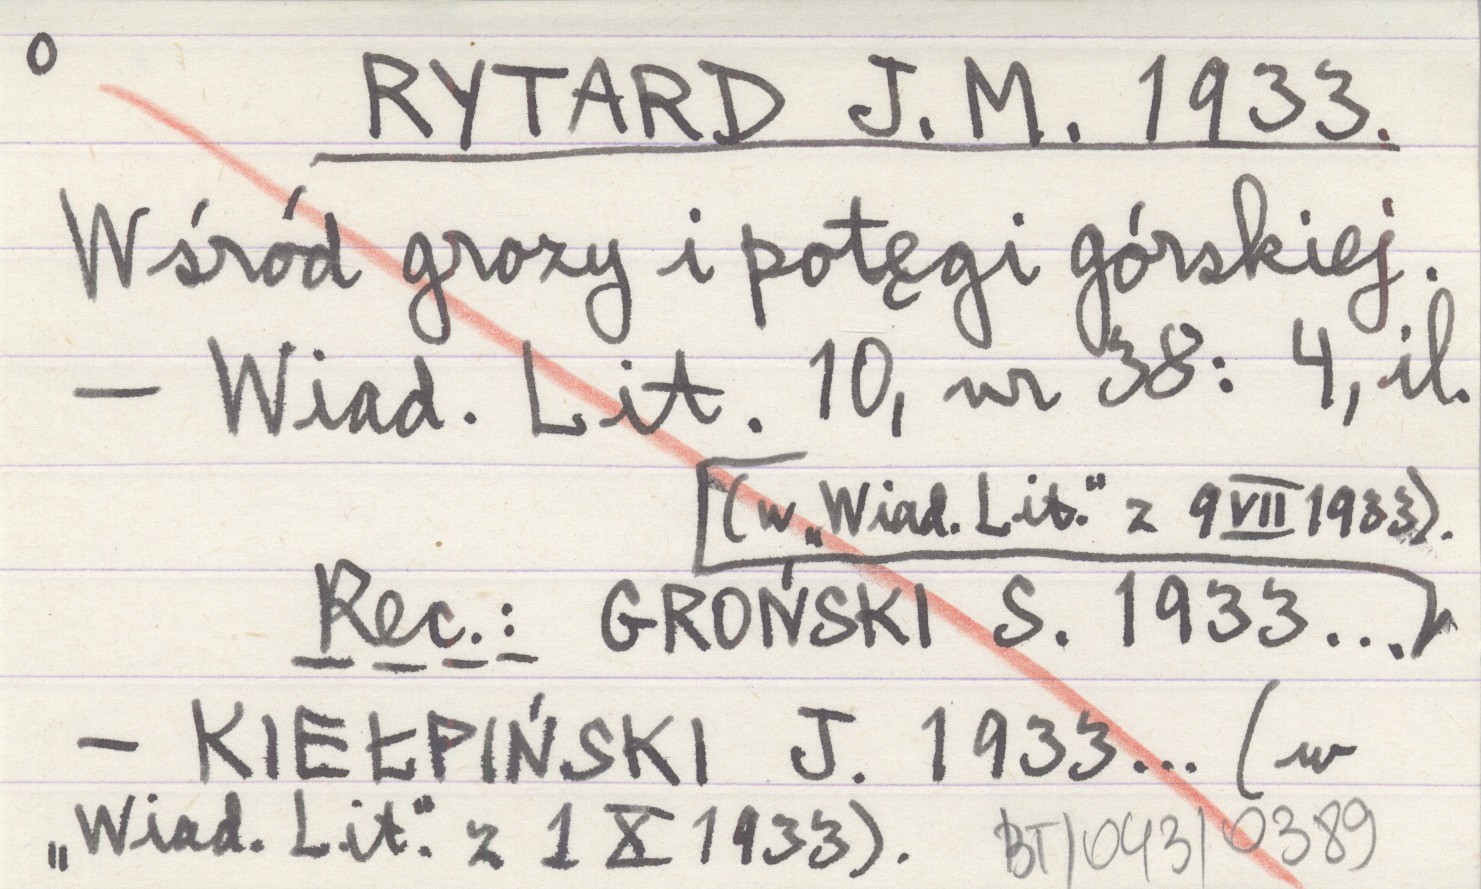 o
RYTARD J.M. 1933.
Wśród grozy i potęgi górskiej.
— Wiad. Lit. 10, nr 38: 4, il.
(w „Wiad. Lit." z 9 VII 1933).
Rec.: GROŃSKI S. 1933...
— KIEŁPIŃSKI J. 1933... (w
„Wiad. Lit." z 1 X 1933).
BT/043/0389